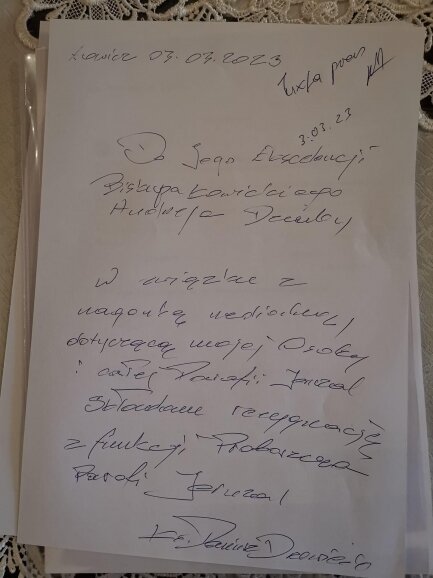 Łowicz 03.03.2023
Juxta preces
3.03.23
Do Jego Ekscelencji
Biskupa Łowickiego
Andrzeja Dziuby
W związku z
nagonką medialną,
dotyczącą mojej Osoby
i całej Parafii Jeruzal
Składam rezygnację
z funkcji Proboszcza
Parafii Jeruzal
Ks. Dariusz